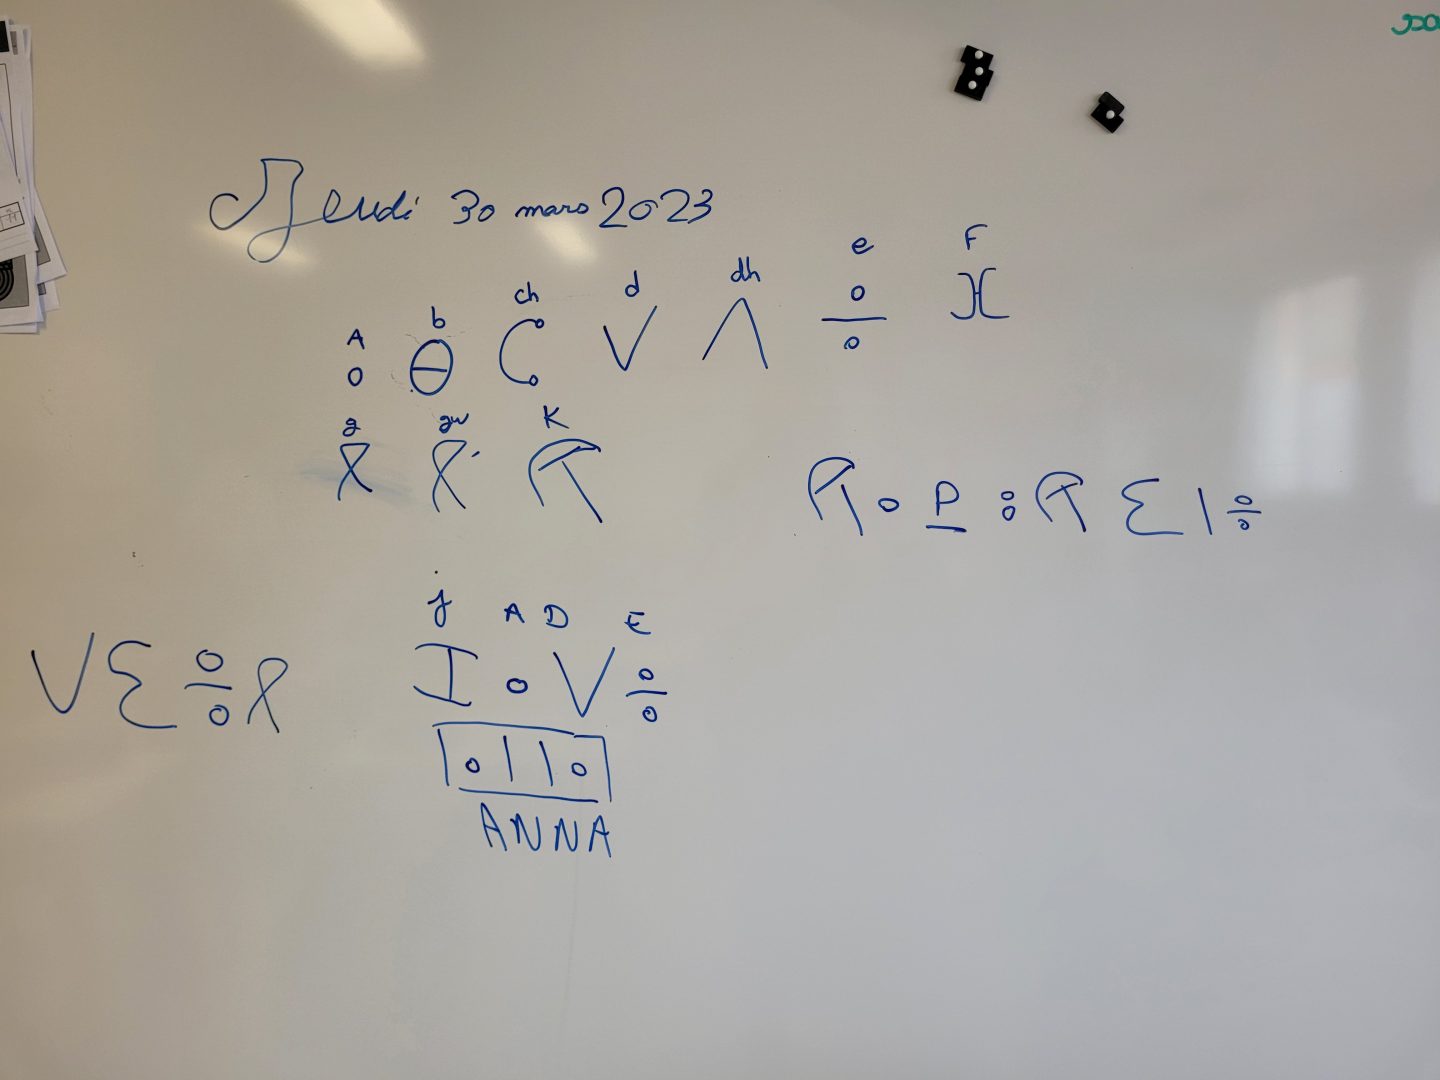 Jeudi 30 mars 2023
A b ch d dh e F
ⴰ ⴱ ⵛ ⴷ ⴹ ⴻ ⴼ
g gw K
ⴳ ⴳⵯ ⴽ
ⴽ ⴰ P ⵓ ⴽ ⵉ ⵏ ⴻ
j A D E
ⴷ ⵉ ⴻ ⴳ
ⵊ ⴰ ⴷ ⴻ
ⴰ ⵏ ⵏ ⴰ
ANNA